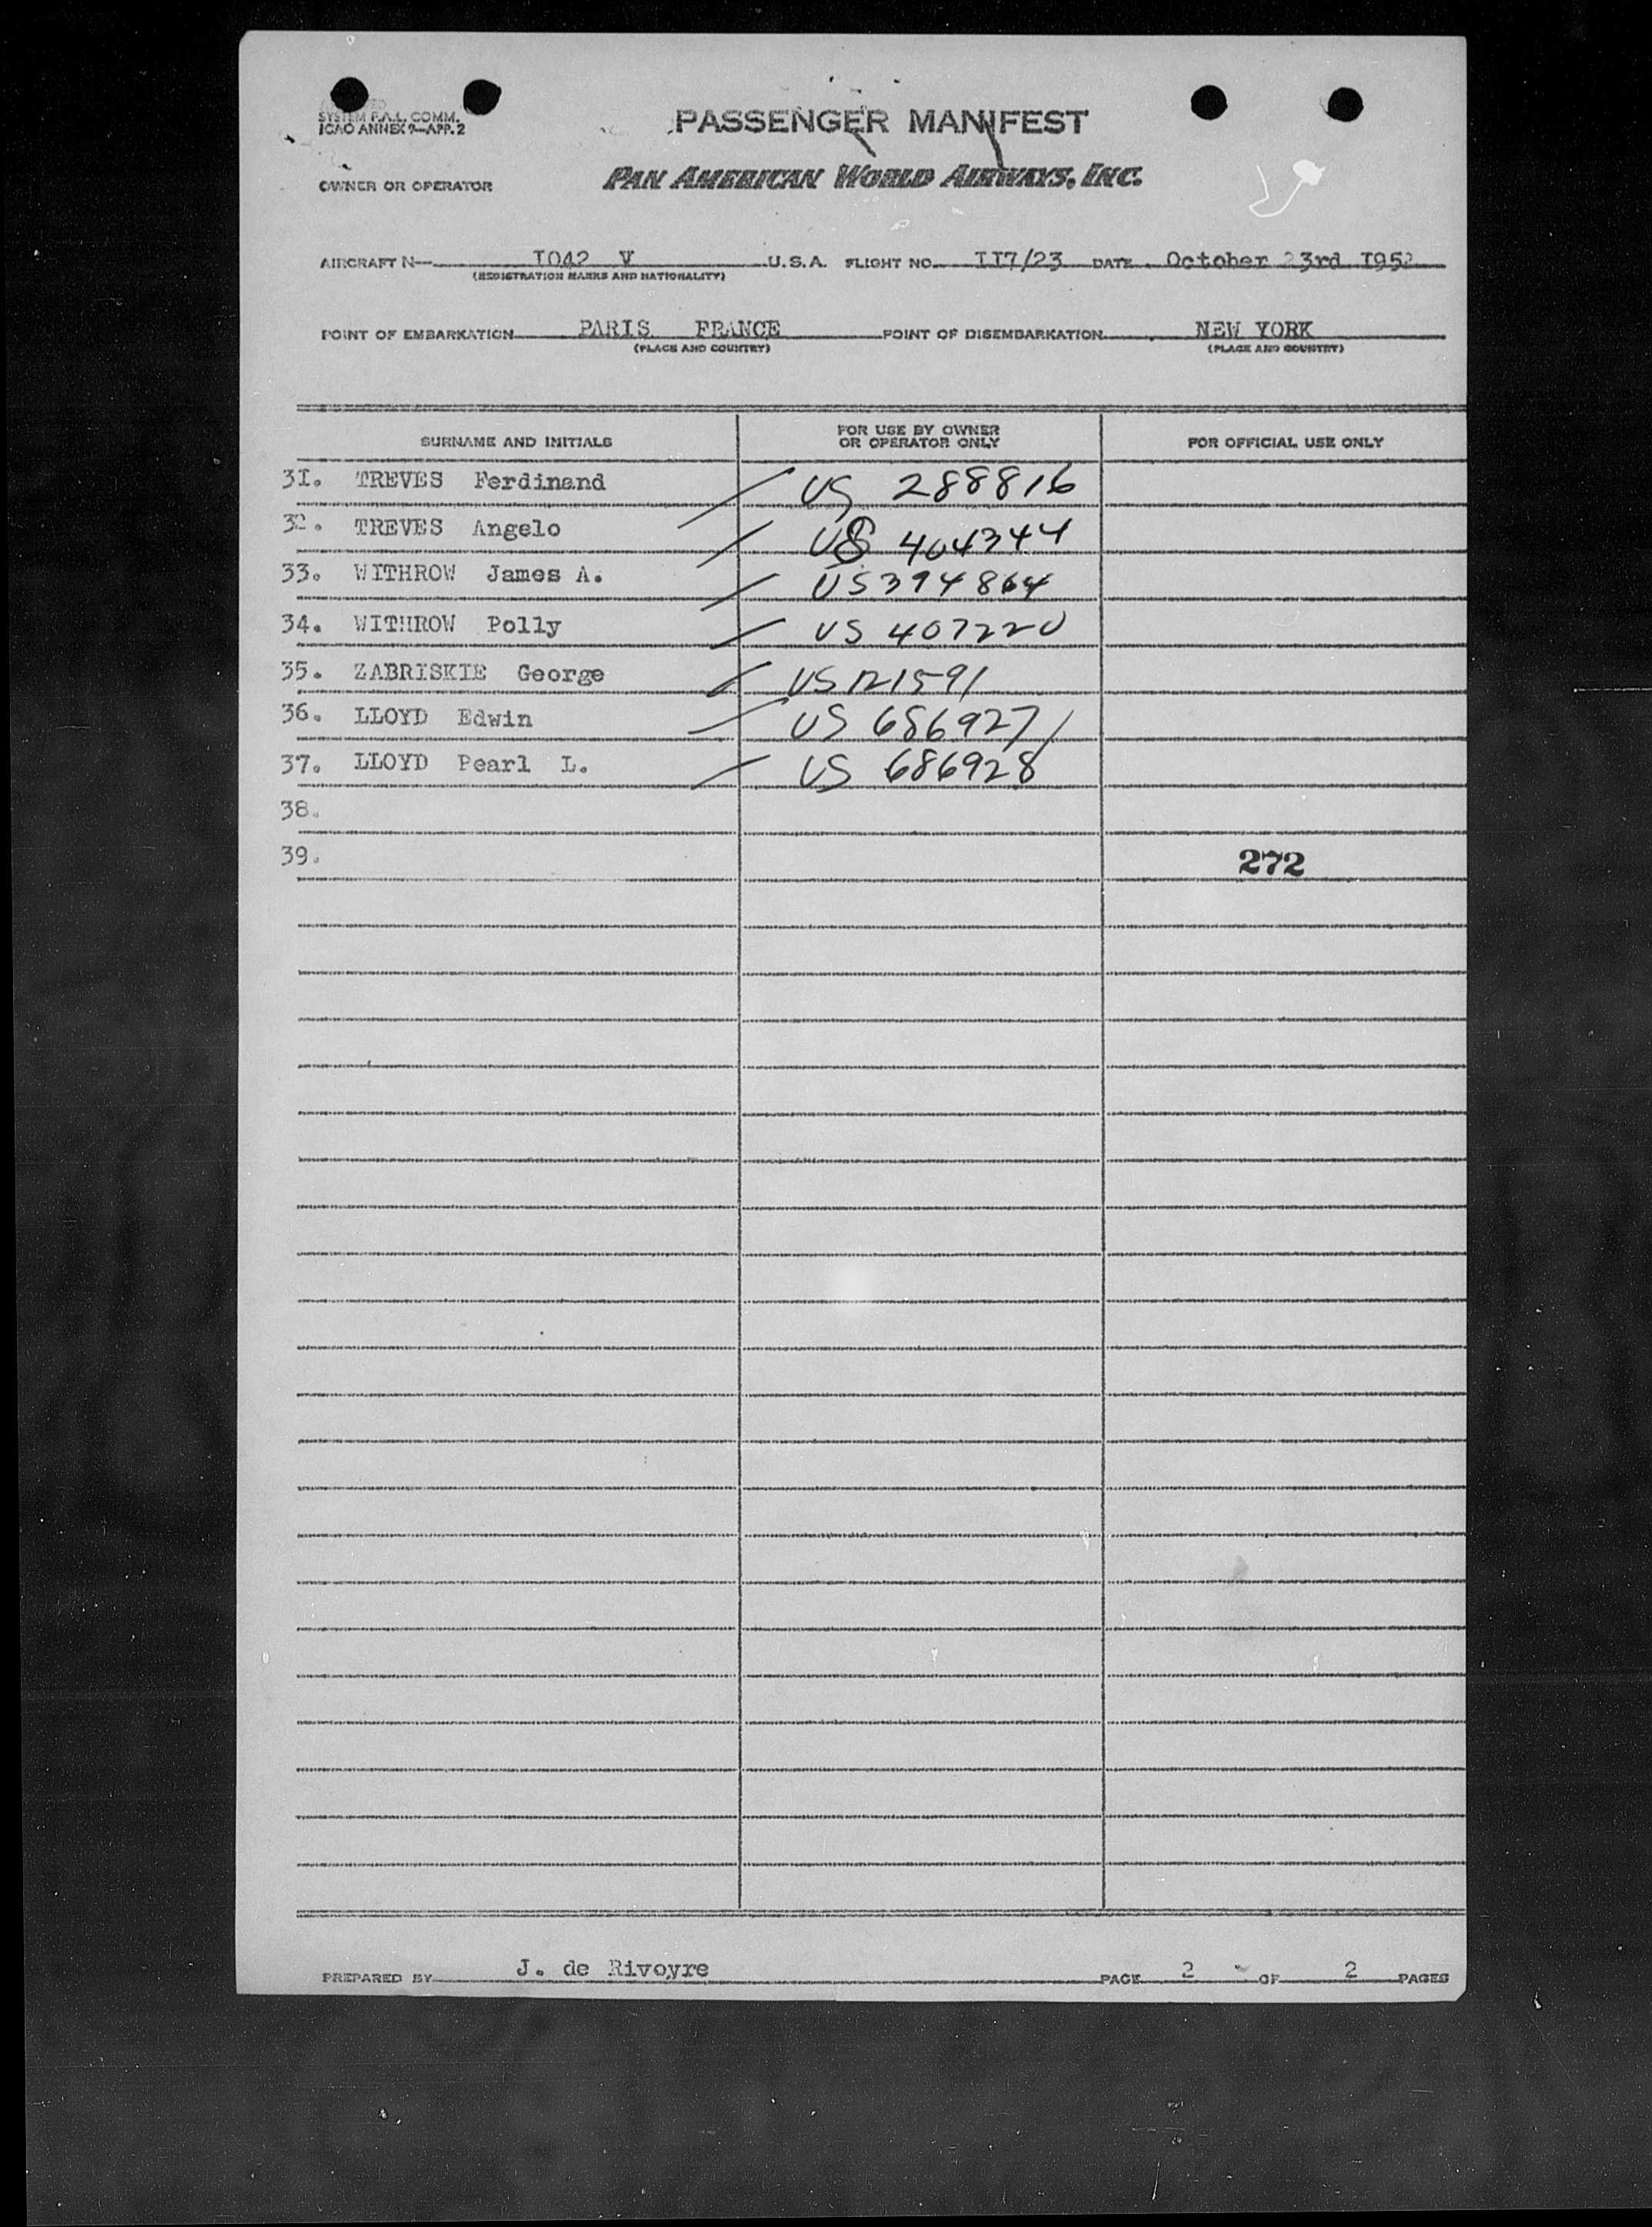 SYSTEM F.A.L. COMM.
ICAO ANNEX 9—APP. 2
PASSENGER MANIFEST
OWNER OR OPERATOR PAN AMERICAN WORLD AIRWAYS, INC.
AIRCRAFT N— I042 V U.S.A. FLIGHT NO. II7/23 DATE October 23rd I952
(REGISTRATION MARKS AND NATIONALITY)
POINT OF EMBARKATION PARIS FRANCE POINT OF DISEMBARKATION NEW YORK
(PLACE AND COUNTRY) (PLACE AND COUNTRY)
SURNAME AND INITIALS FOR USE BY OWNER OR OPERATOR ONLY FOR OFFICIAL USE ONLY
3I. TREVES Ferdinand US 288816
32. TREVES Angelo US 404344
33. WITHROW James A. US 394864
34. WITHROW Polly US 407220
35. ZABRISKIE George US 121591
36. LLOYD Edwin US 686927
37. LLOYD Pearl L. US 686928
38.
39. 272
PREPARED BY J. de Rivoyre PAGE 2 OF 2 PAGES